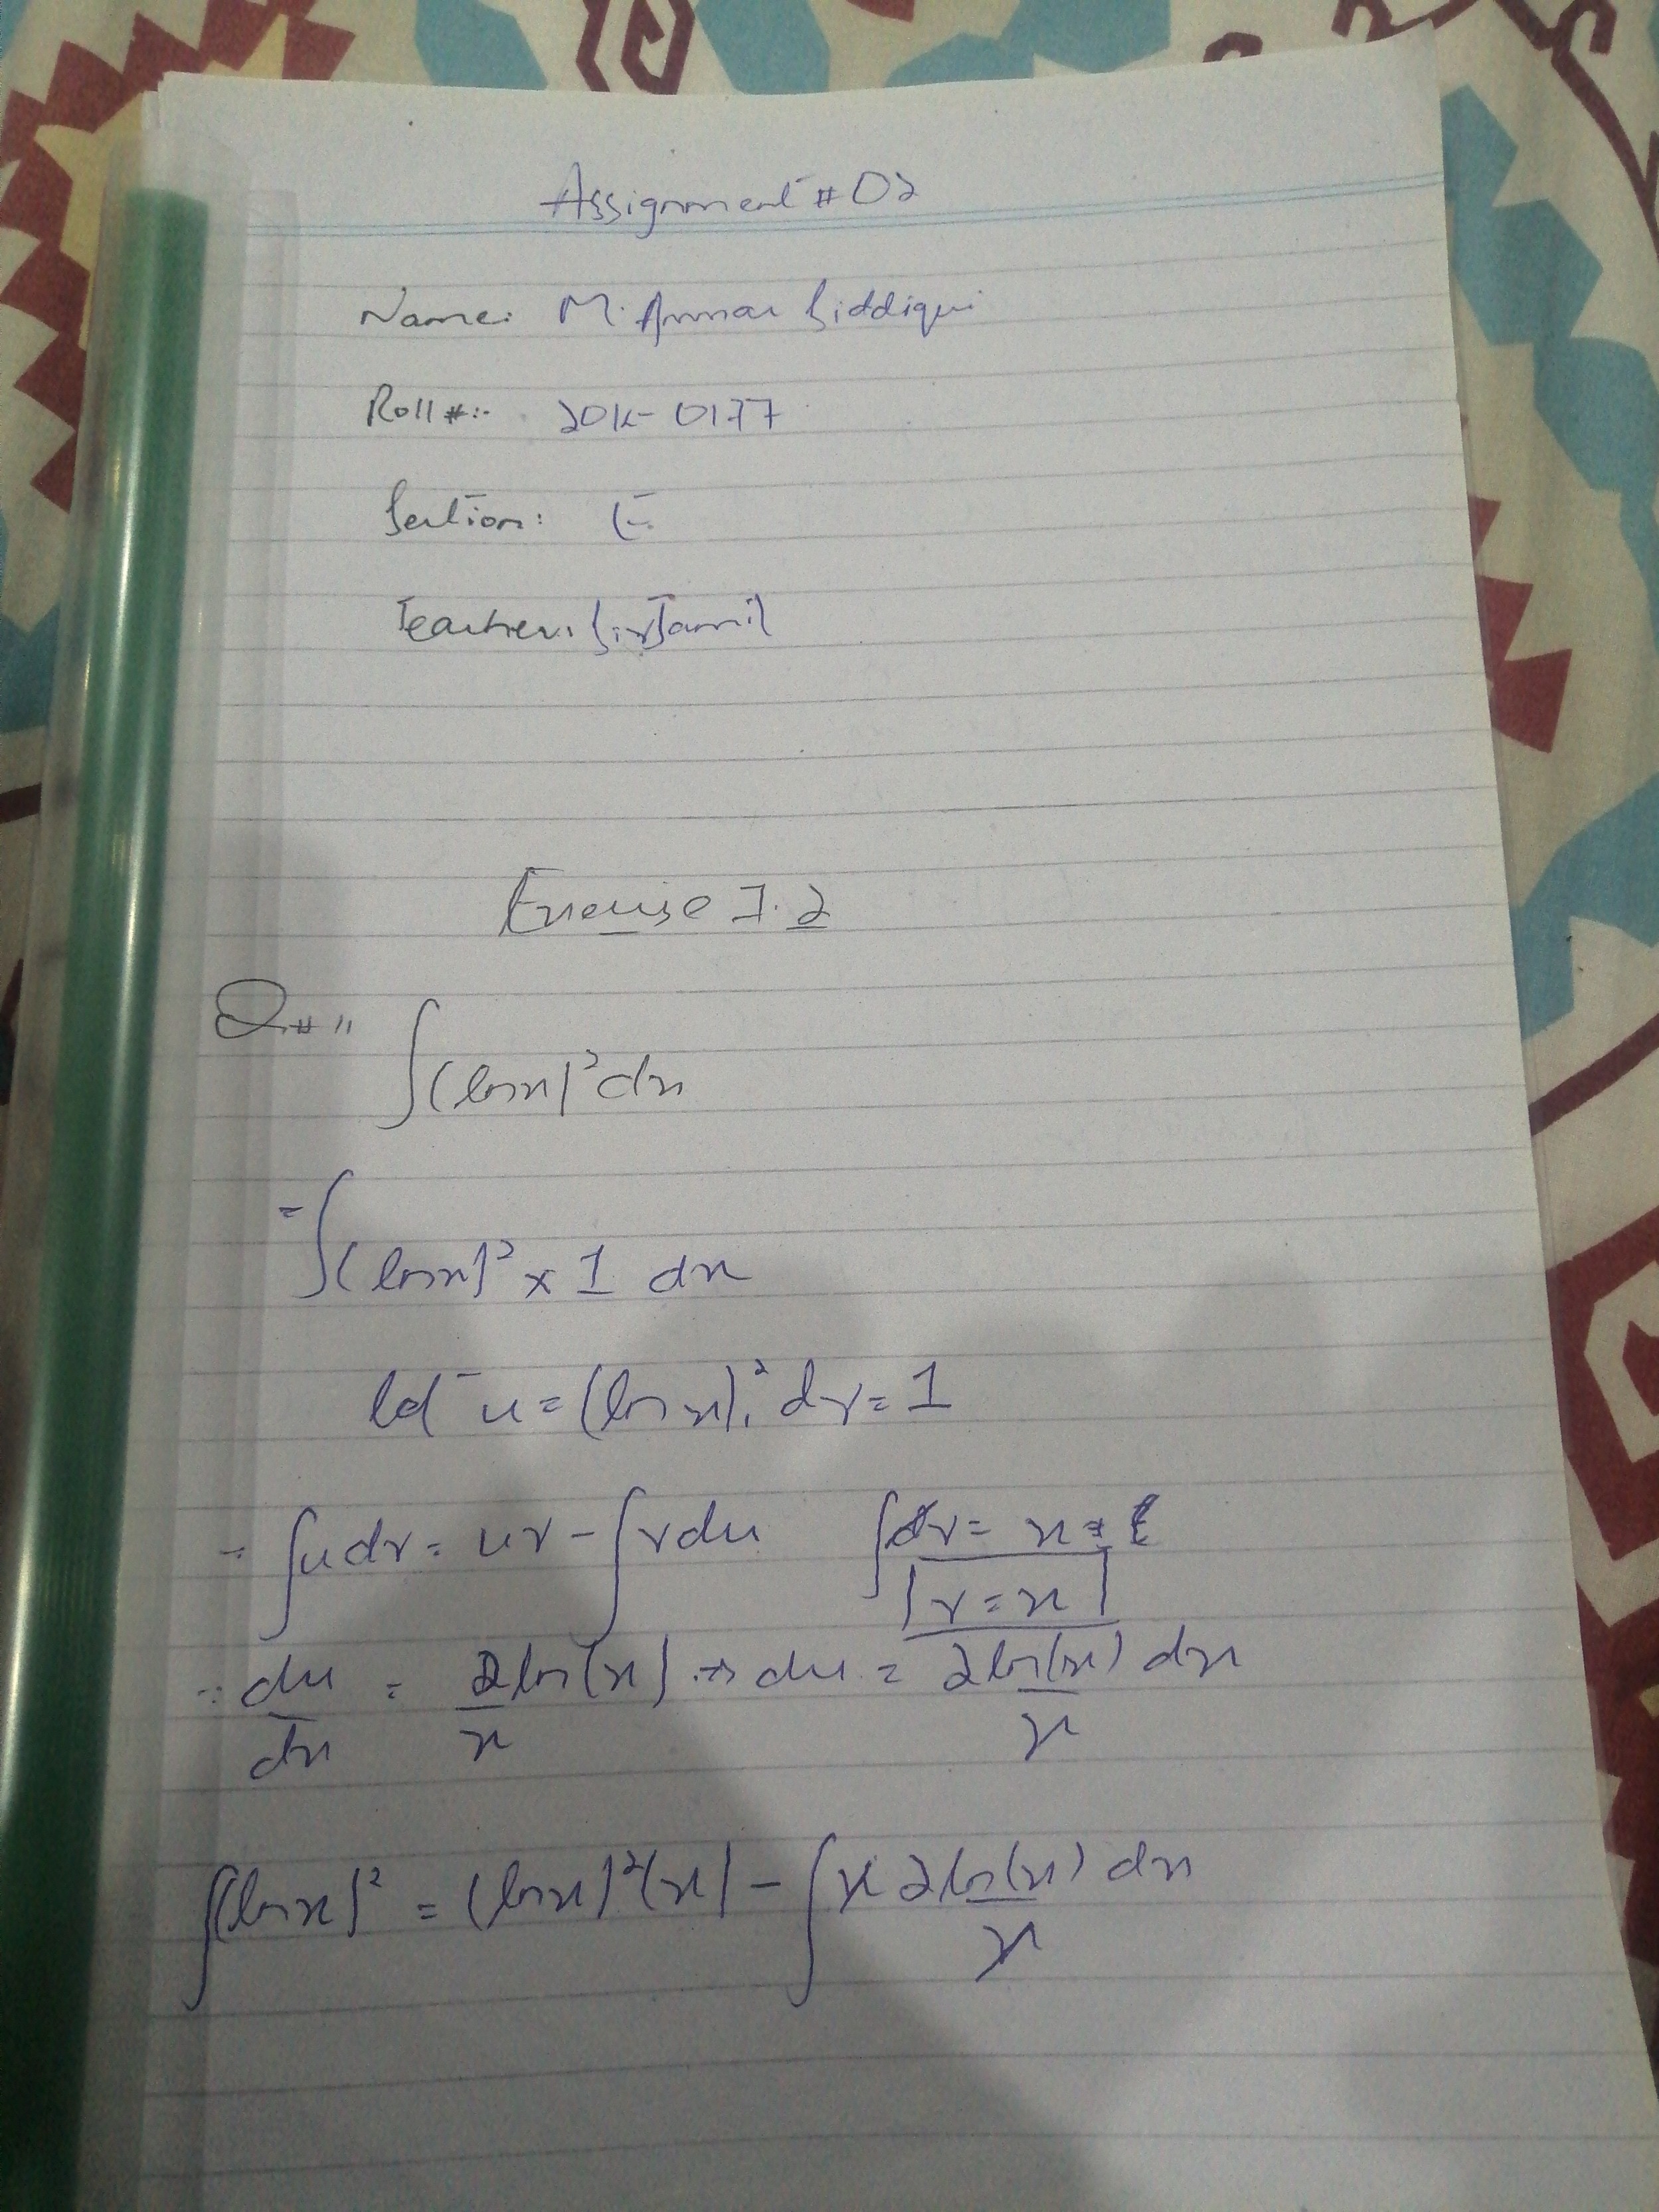 Assignment # 02
Name: M. Ammar Siddiqui
Roll #:- 20K-0177
Section: E
Teacher: Sir Jamil
Exercise 7.2
Q# 11 ∫(lnx)² dx
= ∫(lnx)² x 1 dx
let u = (lnx)², dv = 1
= ∫u dv = uv - ∫v du ∫dv = x
v = x
∴ du/dx = 2ln(x)/x → du = 2ln(x)/x dx
∫(lnx)² = (lnx)²(x) - ∫x 2ln(x)/x dx